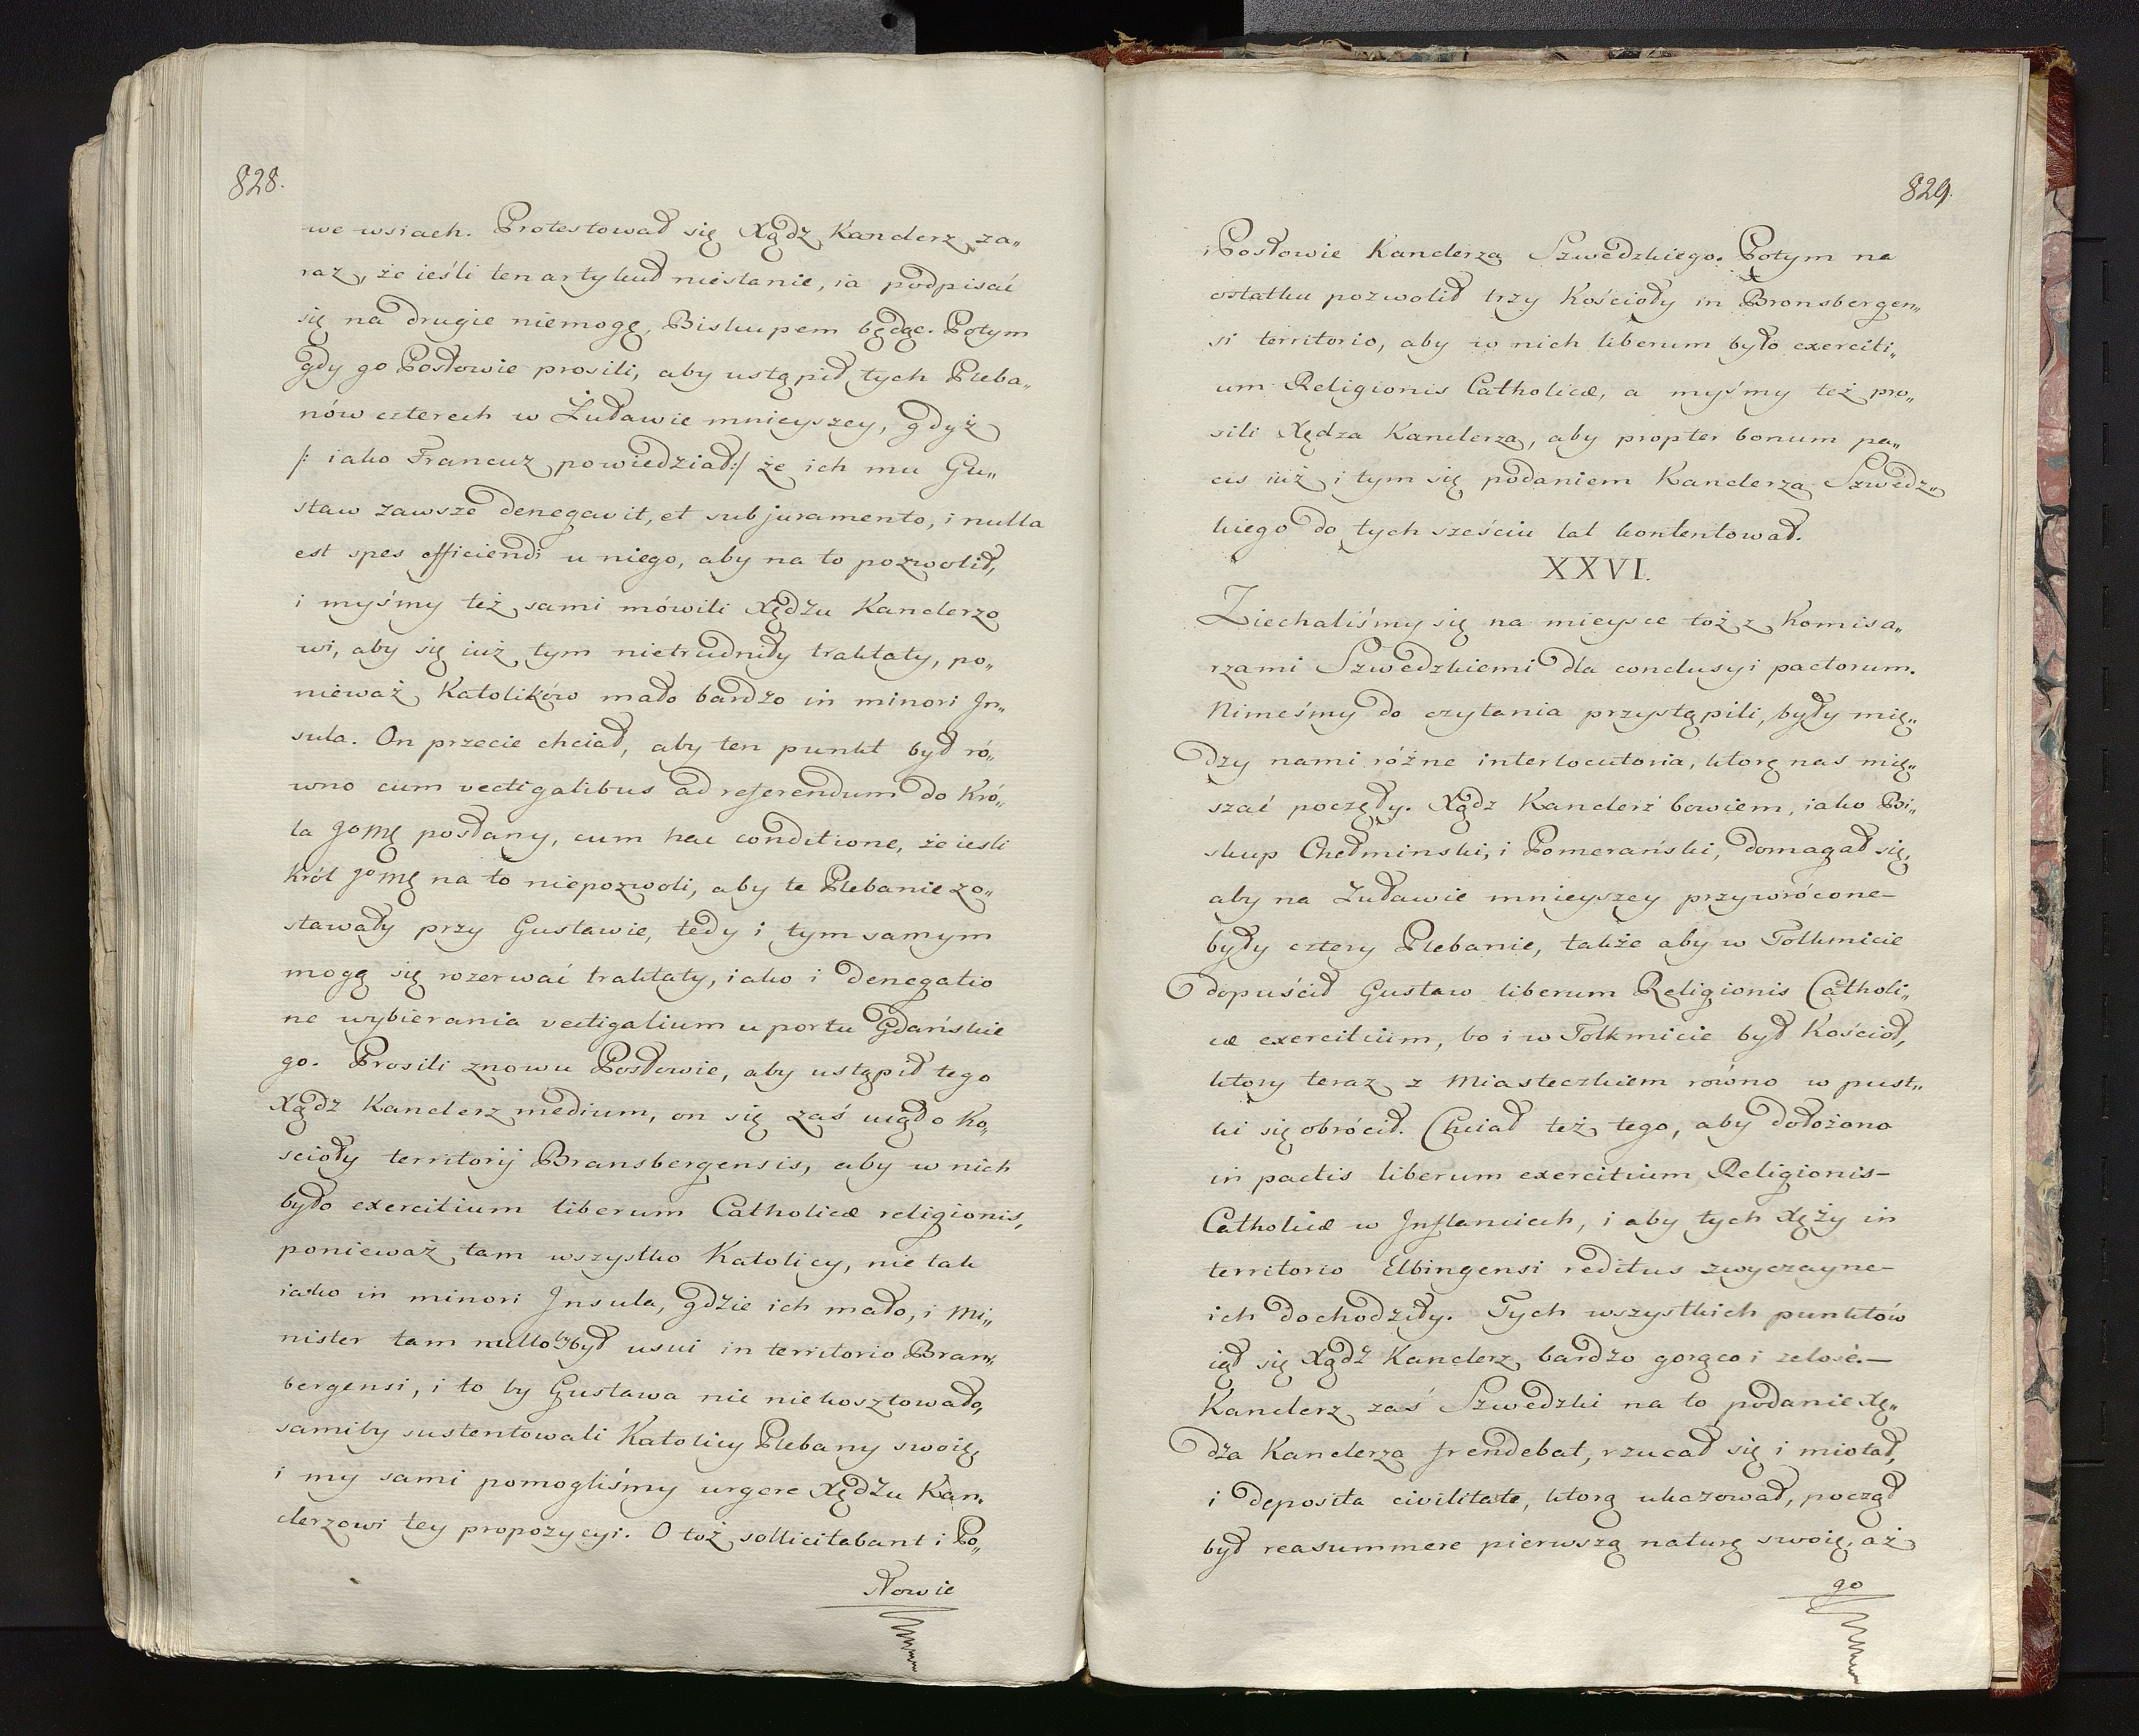 828.
we wsiach. Protestował się Xądz Kanclerz za„
raz, że ieśli ten artykuł niestanie, ia podpisać
się na drugie niemogę, Biskupem będąc. Potym
gdy go Posłowie prosili, aby ustąpił tych Pleba„
nów czterech w Żuławie mnieyszey, gdyż
/: iako Francuz powiedział :/ że ich mu Gu„
staw zawsze denegavit, et sub juramento, i nulla
est spes efficiendi u niego, aby na to pozwolił,
i myśmy też sami mówili Xiędzu Kanclerzo
wi, aby się iuż tym nietrudniły traktaty, po„
nieważ Katolików mało bardzo in minori Jn„
sula. On przecie chciał, aby ten punkt był ró„
wno cum vectigalibus ad referendum do Kró„
la Jomę posłany, cum hac conditione, że iesli
Król Jomę na to niepozwoli, aby te Plebanie zo„
stawały przy Gustawie, tedy i tym samym
mogą się rozerwać traktaty, iako i denegatio
ne wybierania vectigalium u portu Gdańskie
go. Prosili znowu Posłowie, aby ustąpił tego
Xądz Kanclerz medium, on się zaś uiął o Ko„
scioły territorij Bransbergensis, aby w nich
było exercitium liberum Catholicæ religionis,
ponieważ tam wszystko Katolicy, nie tak
iako in minori Jnsula, gdzie ich mało, i Mi„
nister tam nullo by był usui in territorio Brans„
bergensi, i to by Gustawa nic niekosztowało,
samiby sustentowali Katolicy Plebany swoie,
i my sami pomogliśmy urgere Xiędzu Kan„
clerzowi tey propozycyi. O toż sollicitabant i Po„
słowie
829.
Posłowie Kanclerza Szwedzkiego. Potym na
ostatku pozwolił trzy Kościoły in Bronsbergen„
si territorio, aby w nich liberum było exerciti„
um Religionis Catholicæ, a myśmy też pro„
sili Xędza Kanclerza, aby propter bonum pa„
cis iuż i tym się podaniem Kanclerza Szwedz„
kiego do tych sześciu lat kontentował.
XXVI.
Ziechaliśmy się na mieysce toż z Komisa„
rzami Szwedzkiemi dla conclusyi pactorum.
Nimeśmy do czytania przystąpili, były mię„
dzy nami różne interlocutoria, ktorę nas mię„
szać poczęły. Xądz Kanclerz bowiem, iako Bi„
skup Chełminski, i Pomerański, domagał się,
aby na Żuławie mnieyszey przywrócone–
były cztery Plebanie, także aby w Tolkmicie
dopuścił Gustaw liberum Religionis Catholi„
cæ exercitium, bo i w Tolkmicie był Kościoł,
ktory teraz z Miasteczkiem równo w pust„
ki się obrócił. Chciał też tego, aby dołożono
in pactis liberum exercitium Religionis–
Catholicæ w Jnflanciech, i aby tych Xęży in
territorio Elbingensi reditus zwyczayne–
ich dochodziły. Tych wszystkich punktów
iął się Xądz Kanclerz bardzo gorąco i zelosè.–
Kanclerz zaś Szwedzki na to podanie Xę„
dza Kanclerza frendebat, rzucał się i miotał,
i deposita civilitate, ktorą ukazował, począł
był reasummere pierwszą naturę swoię, aż
go